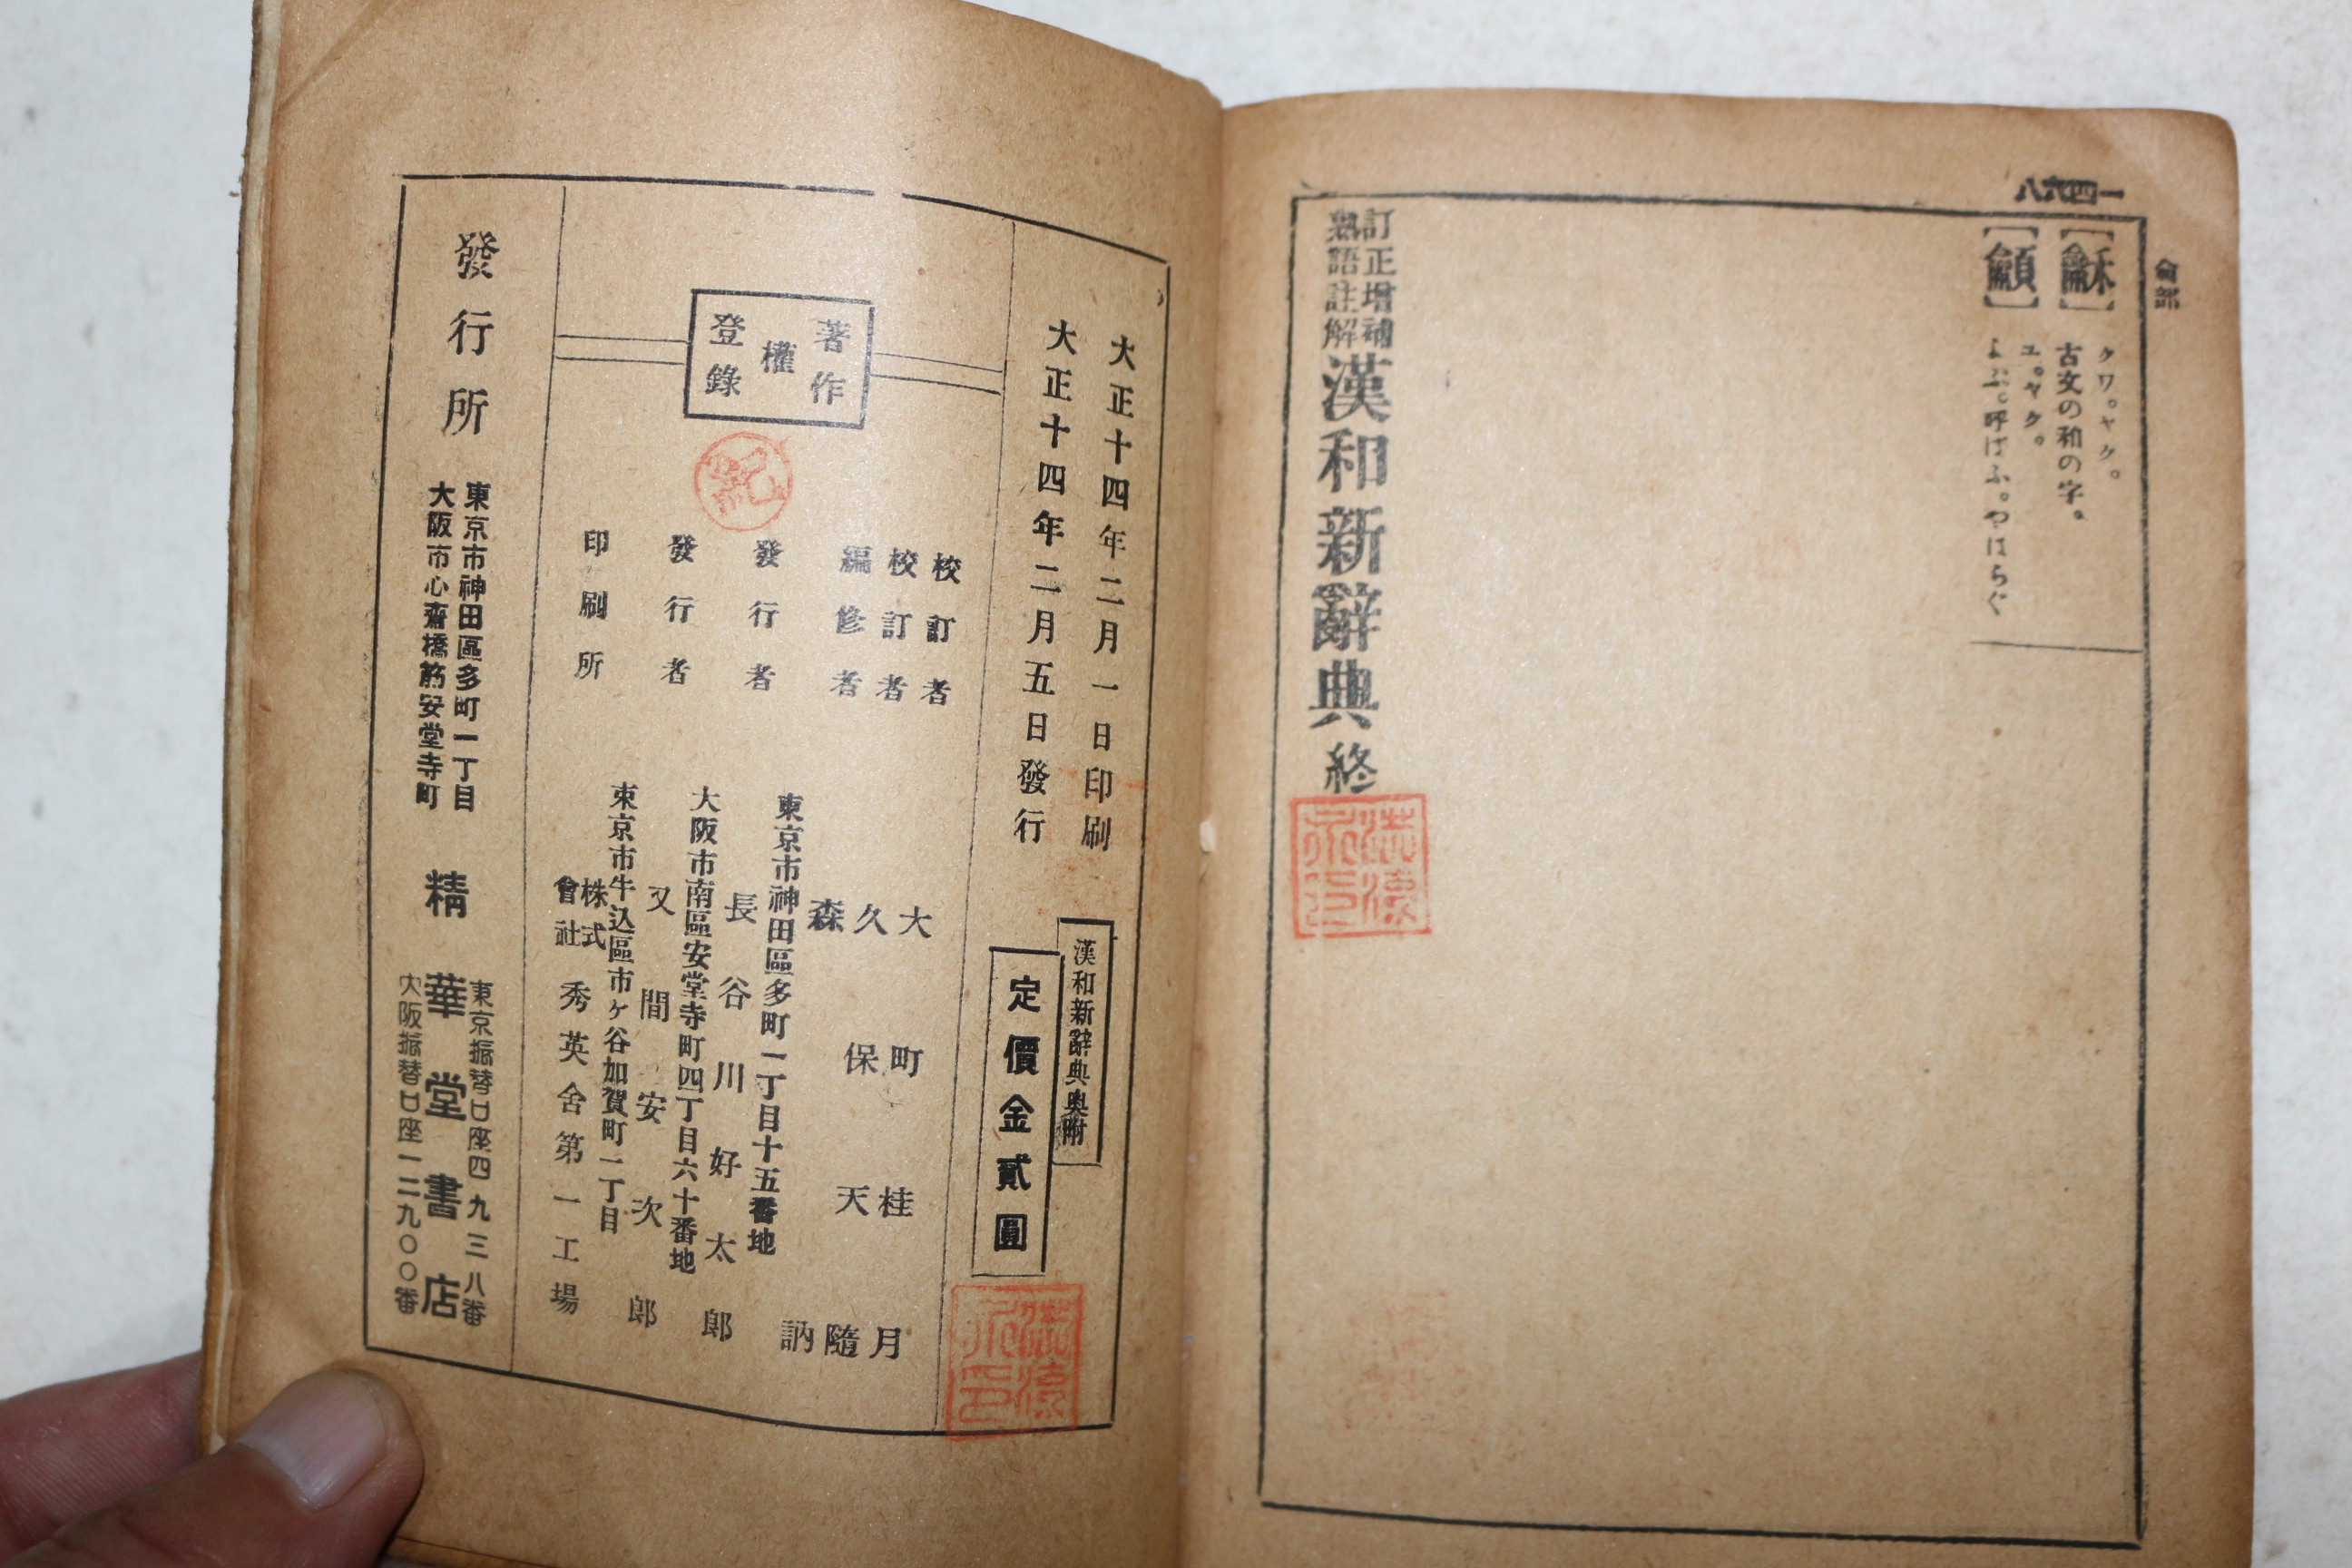 一四六八
龠部
【龢】
クワ。ヤク。
古文の和の字。
【龥】
ユ。ヤク。
よぶ。呼ばふ。やはらぐ
訂正增補
熟語註解
漢和新辭典終
漢和新辭典奧附
定價金貳圓
大正十四年二月一日印刷
大正十四年二月五日發行
著作權登錄
校訂者 大町桂月
校訂者 久保天隨
編修者 森訥
東京市神田區多町一丁目十五番地
發行者 長谷川好太郎
大阪市南區安堂寺町四丁目六十番地
發行者 又間安次郎
東京市牛込區市ヶ谷加賀町一丁目
印刷所 株式會社秀英舍第一工場
發行所
東京市神田區多町一丁目
大阪市心齋橋筋安堂寺町
精華堂書店
東京振替口座四九三八番
大阪振替口座一二九〇〇番